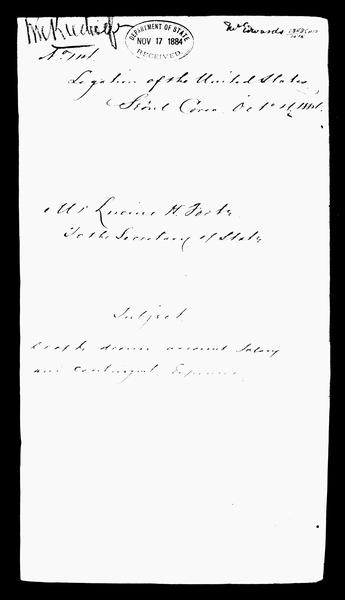 DEPARTMENT OF STATE
NOV 17 1884
RECEIVED
Mr Edwards
Legation of the United States
Söul Corea Oct
Mr Lucius H. Foote
To the Secretary of State
Subject
drawn account Salary
and Contingent Expenses